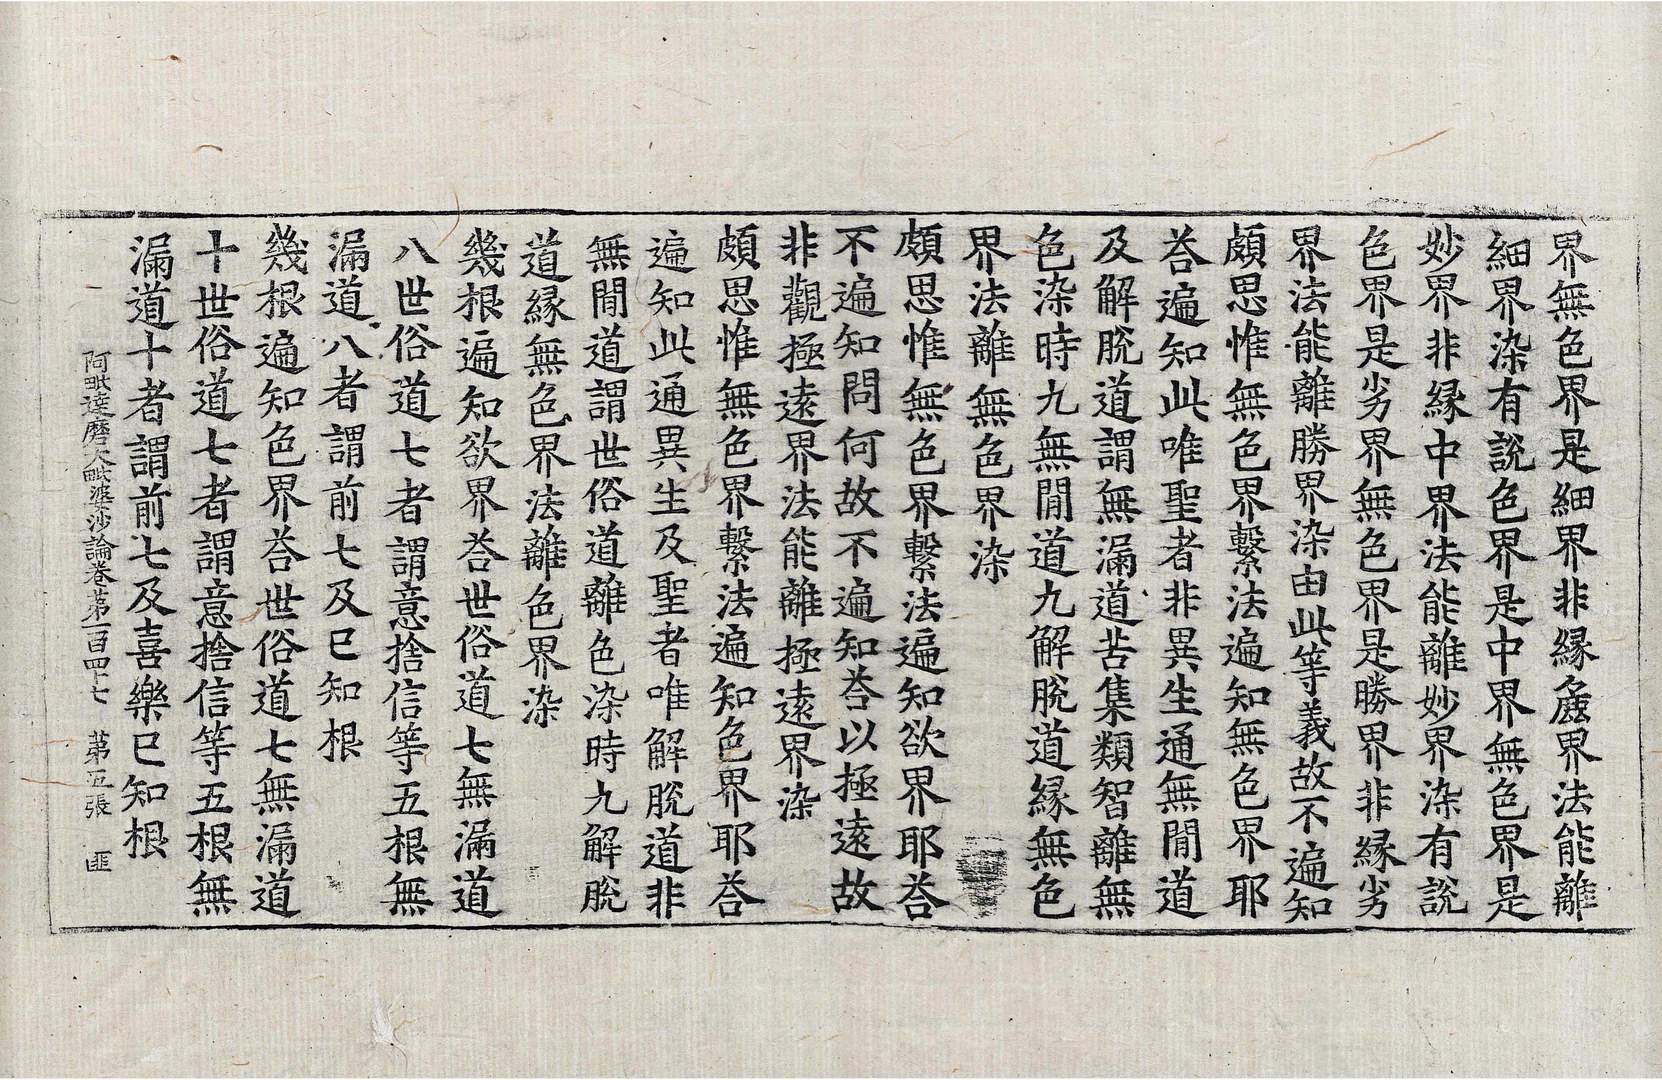 界無色界是細界非緣麁界法能離
細界染有說色界是中界無色界是
妙界非緣中界法能離妙界染有說
色界是劣界無色界是勝界非緣劣
界法能離勝界染由此等義故不遍知
頗思惟無色界繫法遍知無色界耶
荅遍知此唯聖者非異生通無閒道
及解脫道謂無漏道苦集類智離無
色染時九無閒道九解脫道緣無色
界法離無色界染
頗思惟無色界繫法遍知欲界耶荅
不遍知問何故不遍知荅以極遠故
非觀極遠界法能離極遠界染
頗思惟無色界繫法遍知色界耶荅
遍知此通異生及聖者唯解脫道非
無閒道謂世俗道離色染時九解脫
道緣無色界法離色界染
幾根遍知欲界荅世俗道七無漏道
八世俗道七者謂意捨信等五根無
漏道八者謂前七及已知根
幾根遍知色界荅世俗道七無漏道
十世俗道七者謂意捨信等五根無
漏道十者謂前七及喜樂已知根
阿毗達磨大毗婆沙論卷第一百四十七 第五張 匪